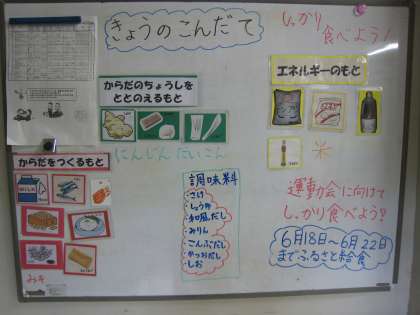 きょうのこんだて
しっかり
食べよう!
からだのちょうしを
ととのえるもと
エネルギーのもと
にんじん だいこん
からだをつくるもと
みそ
調味料
・さけ
・しょうゆ
・和風だし
・みりん
・こんぶだし
・かつおだし
・しお
米
運動会に向けて
しっかり食べよう!!
6月18日~6月22日
までふるさと給食